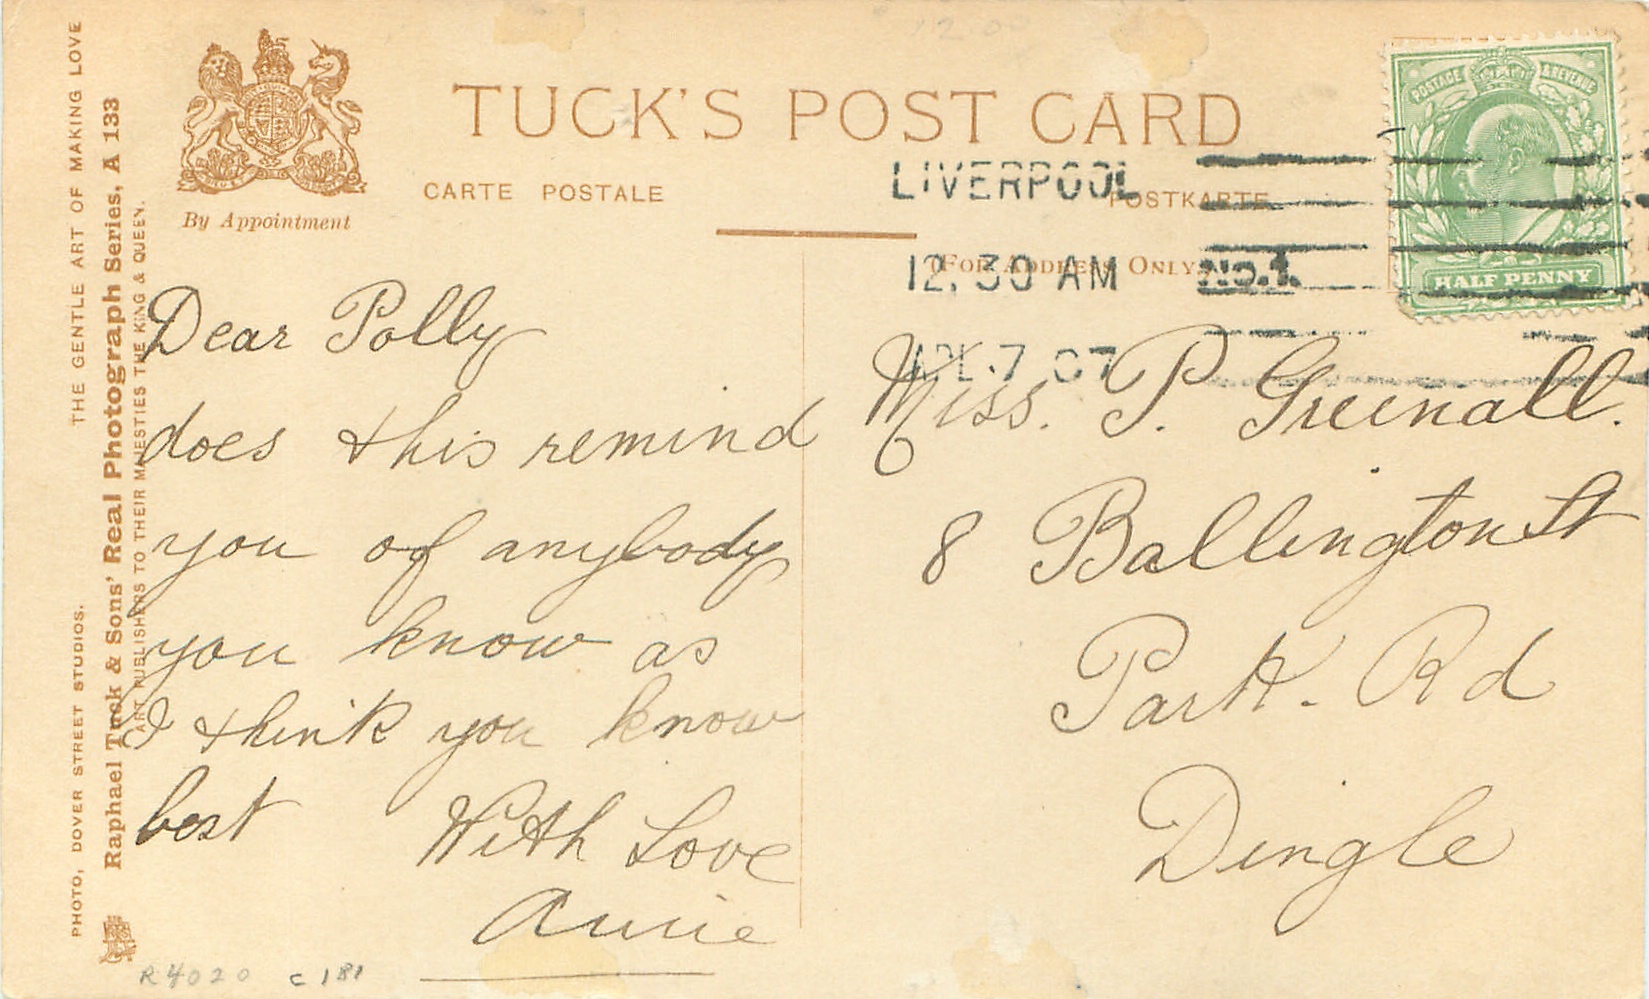 THE GENTLE ART OF MAKING LOVE
PHOTO, DOVER STREET STUDIOS.
Raphael Tuck & Sons' Real Photograph Series. A 133
ART PUBLISHERS TO THEIR MAJESTIES THE KING & QUEEN.
By Appointment
TUCK'S POST CARD
CARTE POSTALE
POSTKARTE
(FOR ADDRESS ONLY)
LIVERPOOL
12.30 AM No.1.
7 07
POSTAGE & REVENUE
HALF PENNY
Dear Polly
does this remind
you of anybody
you know as
I think you know
best With Love
Annie
Miss. P. Greenall.
8 Ballington St
Park. Rd
Dingle
R4020 C181